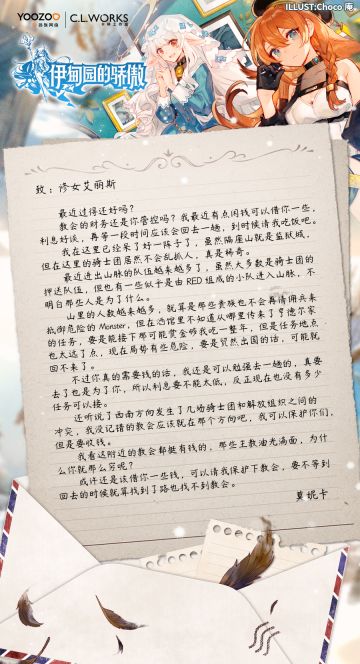 ILLUST:Choco 庵
YOOZOO
游族网络
C.L.WORKS
伊甸园的骄傲
致：修女艾丽斯
最近过得还好吗？
教会的财务还是你管控吗？我最近有点闲钱可以借你一些，
利息好谈，再等一段时间应该会回去一趟，到时候请我吃饭吧。
我在这里已经呆了好一阵子了，虽然隔座山就是监狱城，
但在这里的骑士居然不会乱抓人，真是稀奇。
最近进出山脉的队伍越来越多了，虽然大多数是骑士团的
押送队伍，但也有一些似乎是由 RED 组成的小队进入山脉，不
明白那些人是为了什么。
山里的人数越来越多，就算是那些贵族也不会再请佣兵来
抵御危险的 Monster，但在酒馆里不知道从哪里传来了亨德尔家
的任务，要是能接下那可能赏金够我吃一整年，但是任务地点
也太远了点，现在局势有些危险，要是贸然出国的话，可能就
回不来了。
不过你真的需要钱的话，我还是可以勉强去一趟的，真要
去了也是为了你，所以利息要不能太低，反正现在也没有多少
任务可以接。
还听说了西南方向发生了几场骑士团和解放组织之间的
冲突，我没记错的教会应该就在那个方向吧，我可以保护你们，
但是要收钱。
我看这附近的教会都挺有钱的，那些主教油光满面，为什
么你就那么穷呢？
或许还是该借你一些钱，可以请我保护下教会，要不等到
回去的时候就算找到了路也找不到教会。
莫妮卡